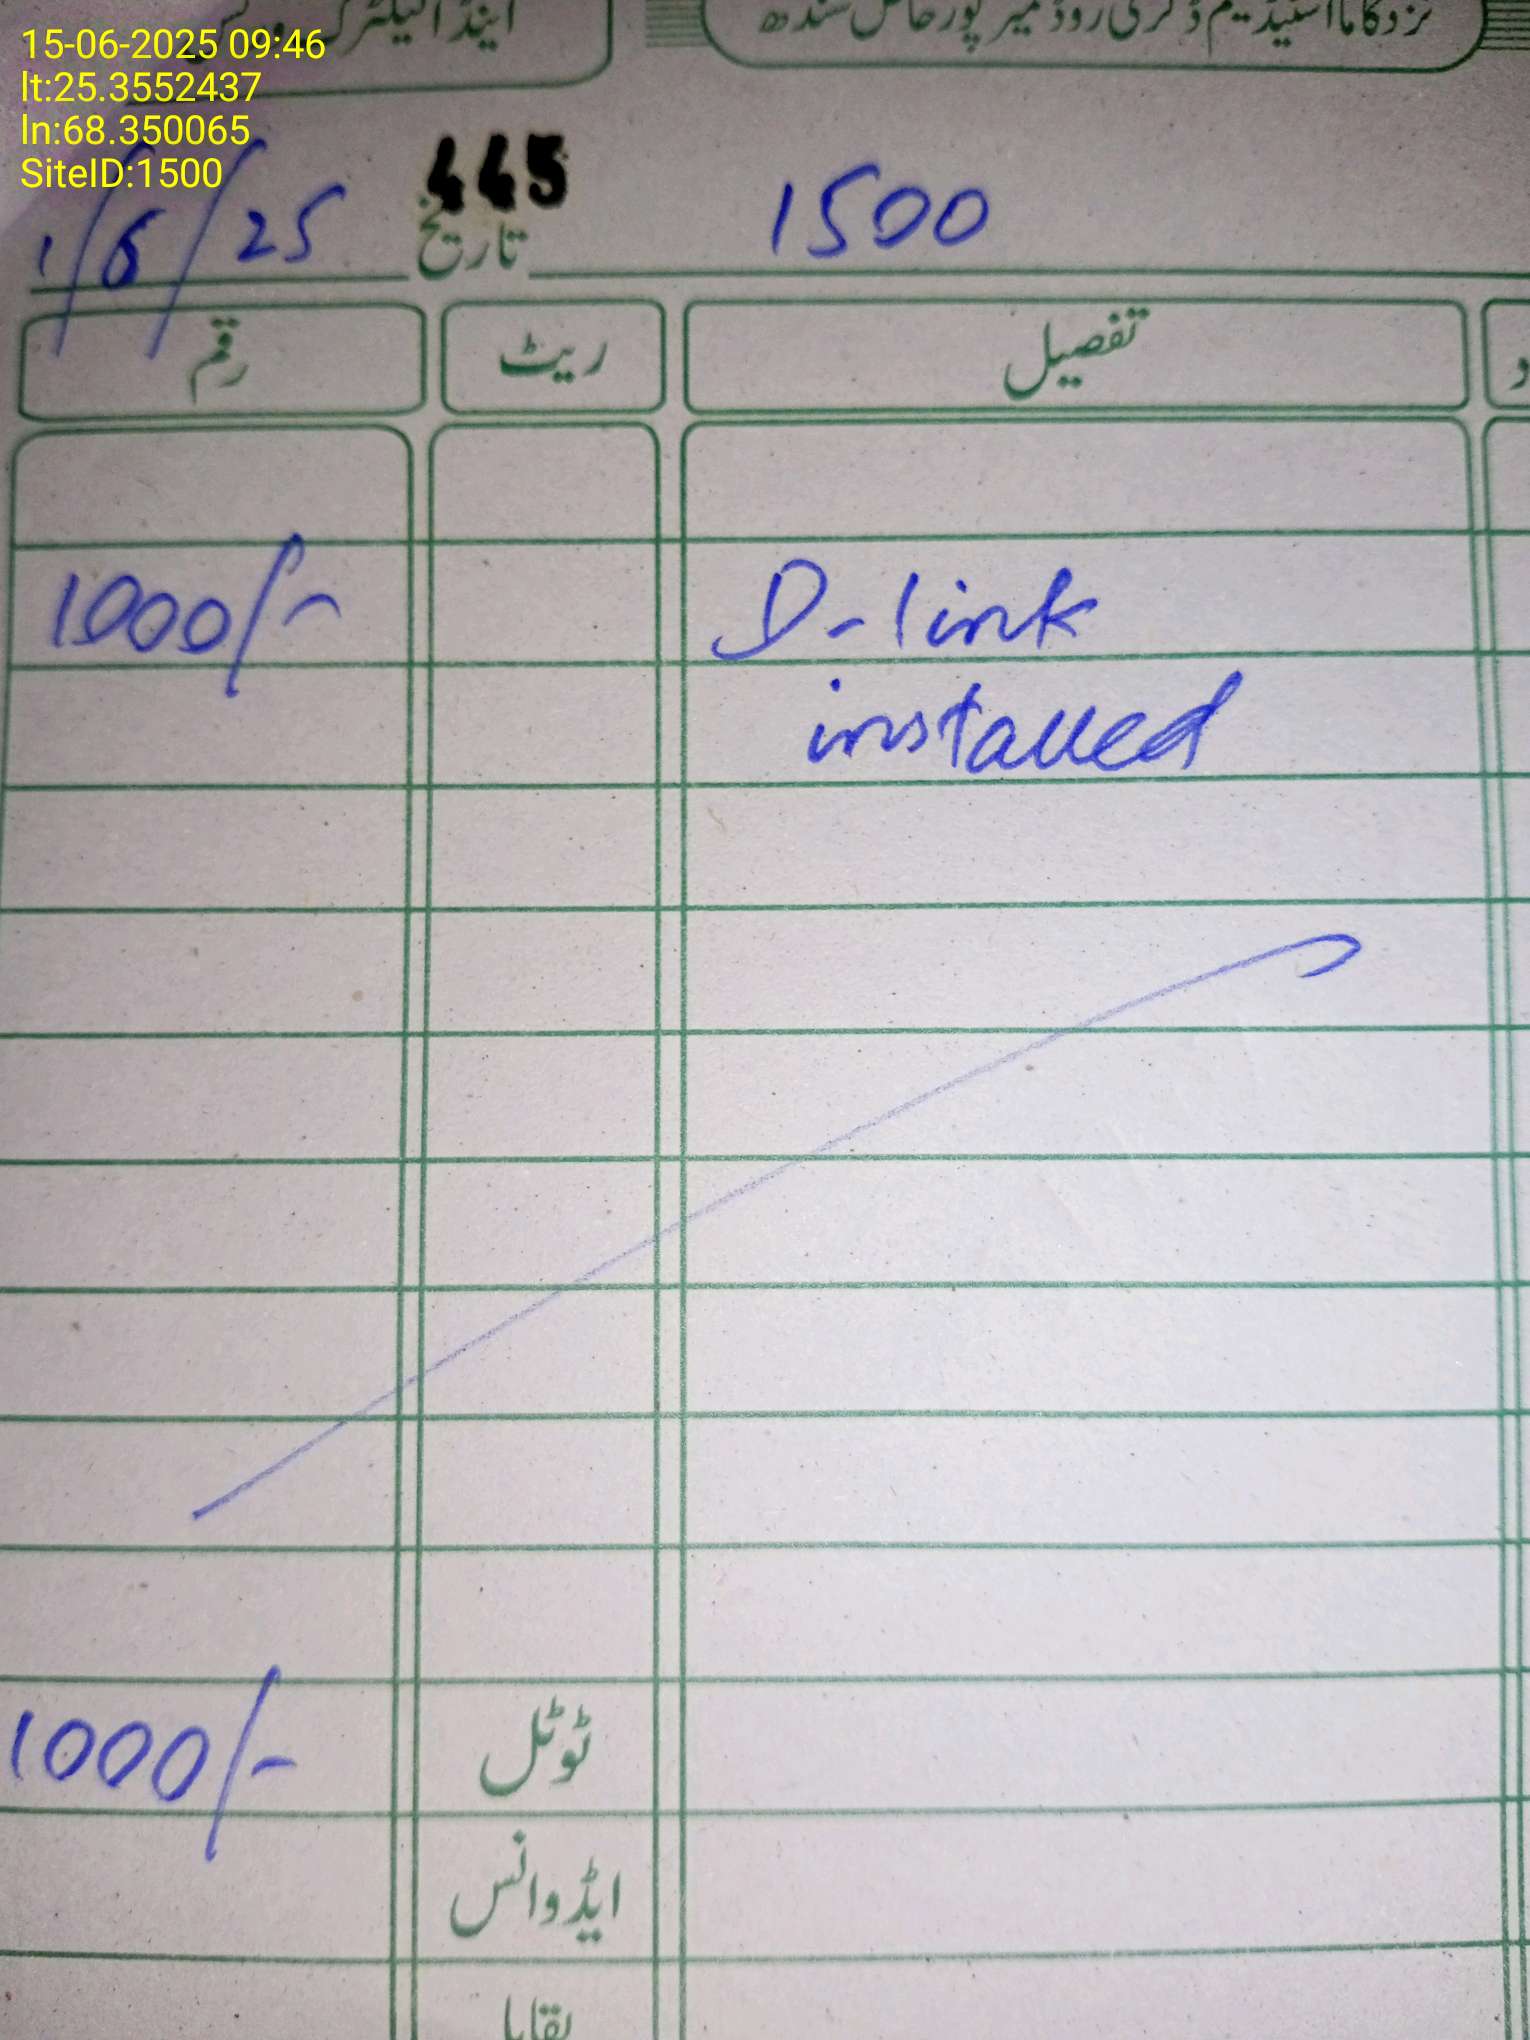 15-06-2025 09:46
lt:25.3552437
ln:68.350065
SiteID:1500
نزد گاما اسٹیڈیم ڈگری روڈ میرپورخاص سندھ
اینڈ الیکٹرک
445
1500
تاریخ 1/6/25
تفصیل ریٹ رقم
D-link 1000/-
installed
ٹوٹل 1000/-
ایڈوانس
بقایا